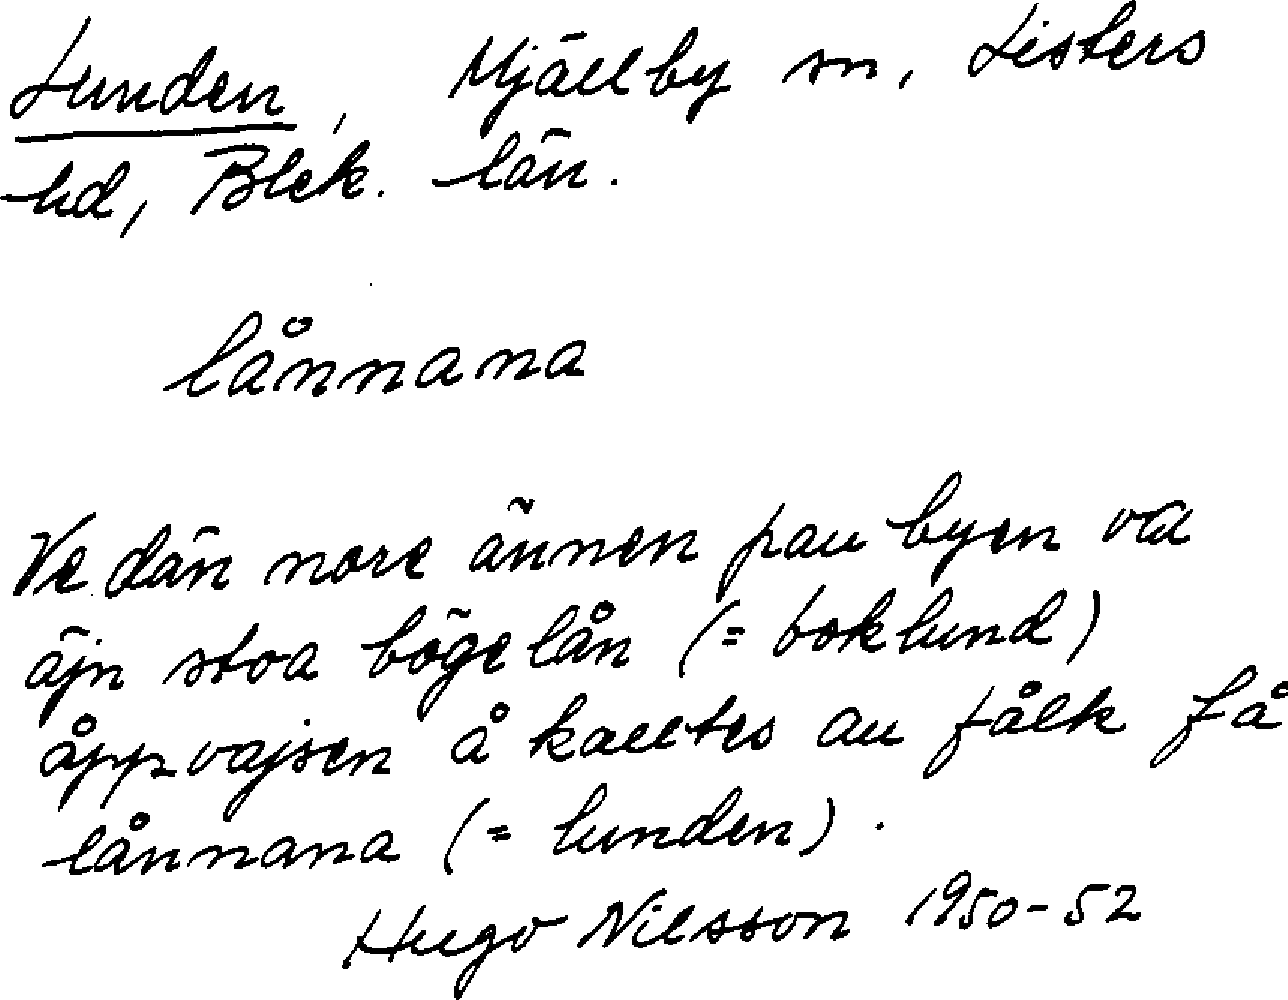 Lunden, Mjällby sn, Listers
hd, Blek. län.
lånnana
Ve dän nore ännen pau byen va
äjn stoa bögelån (= boklund)
åppvajsen å kalltes au fålk få
lånnana (= lunden).
Hugo Nilsson 1950-52